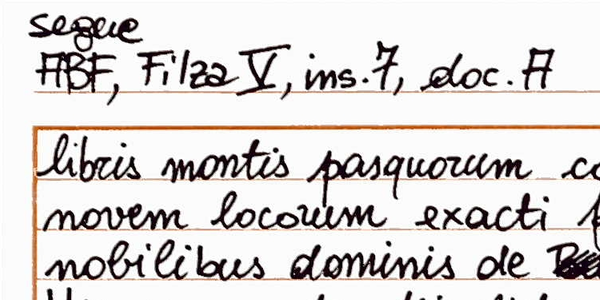 segue
ABF, Filza V, ins. 7, doc. A
libris montis pasquorum
novem locorum exacti
nobilibus dominis de